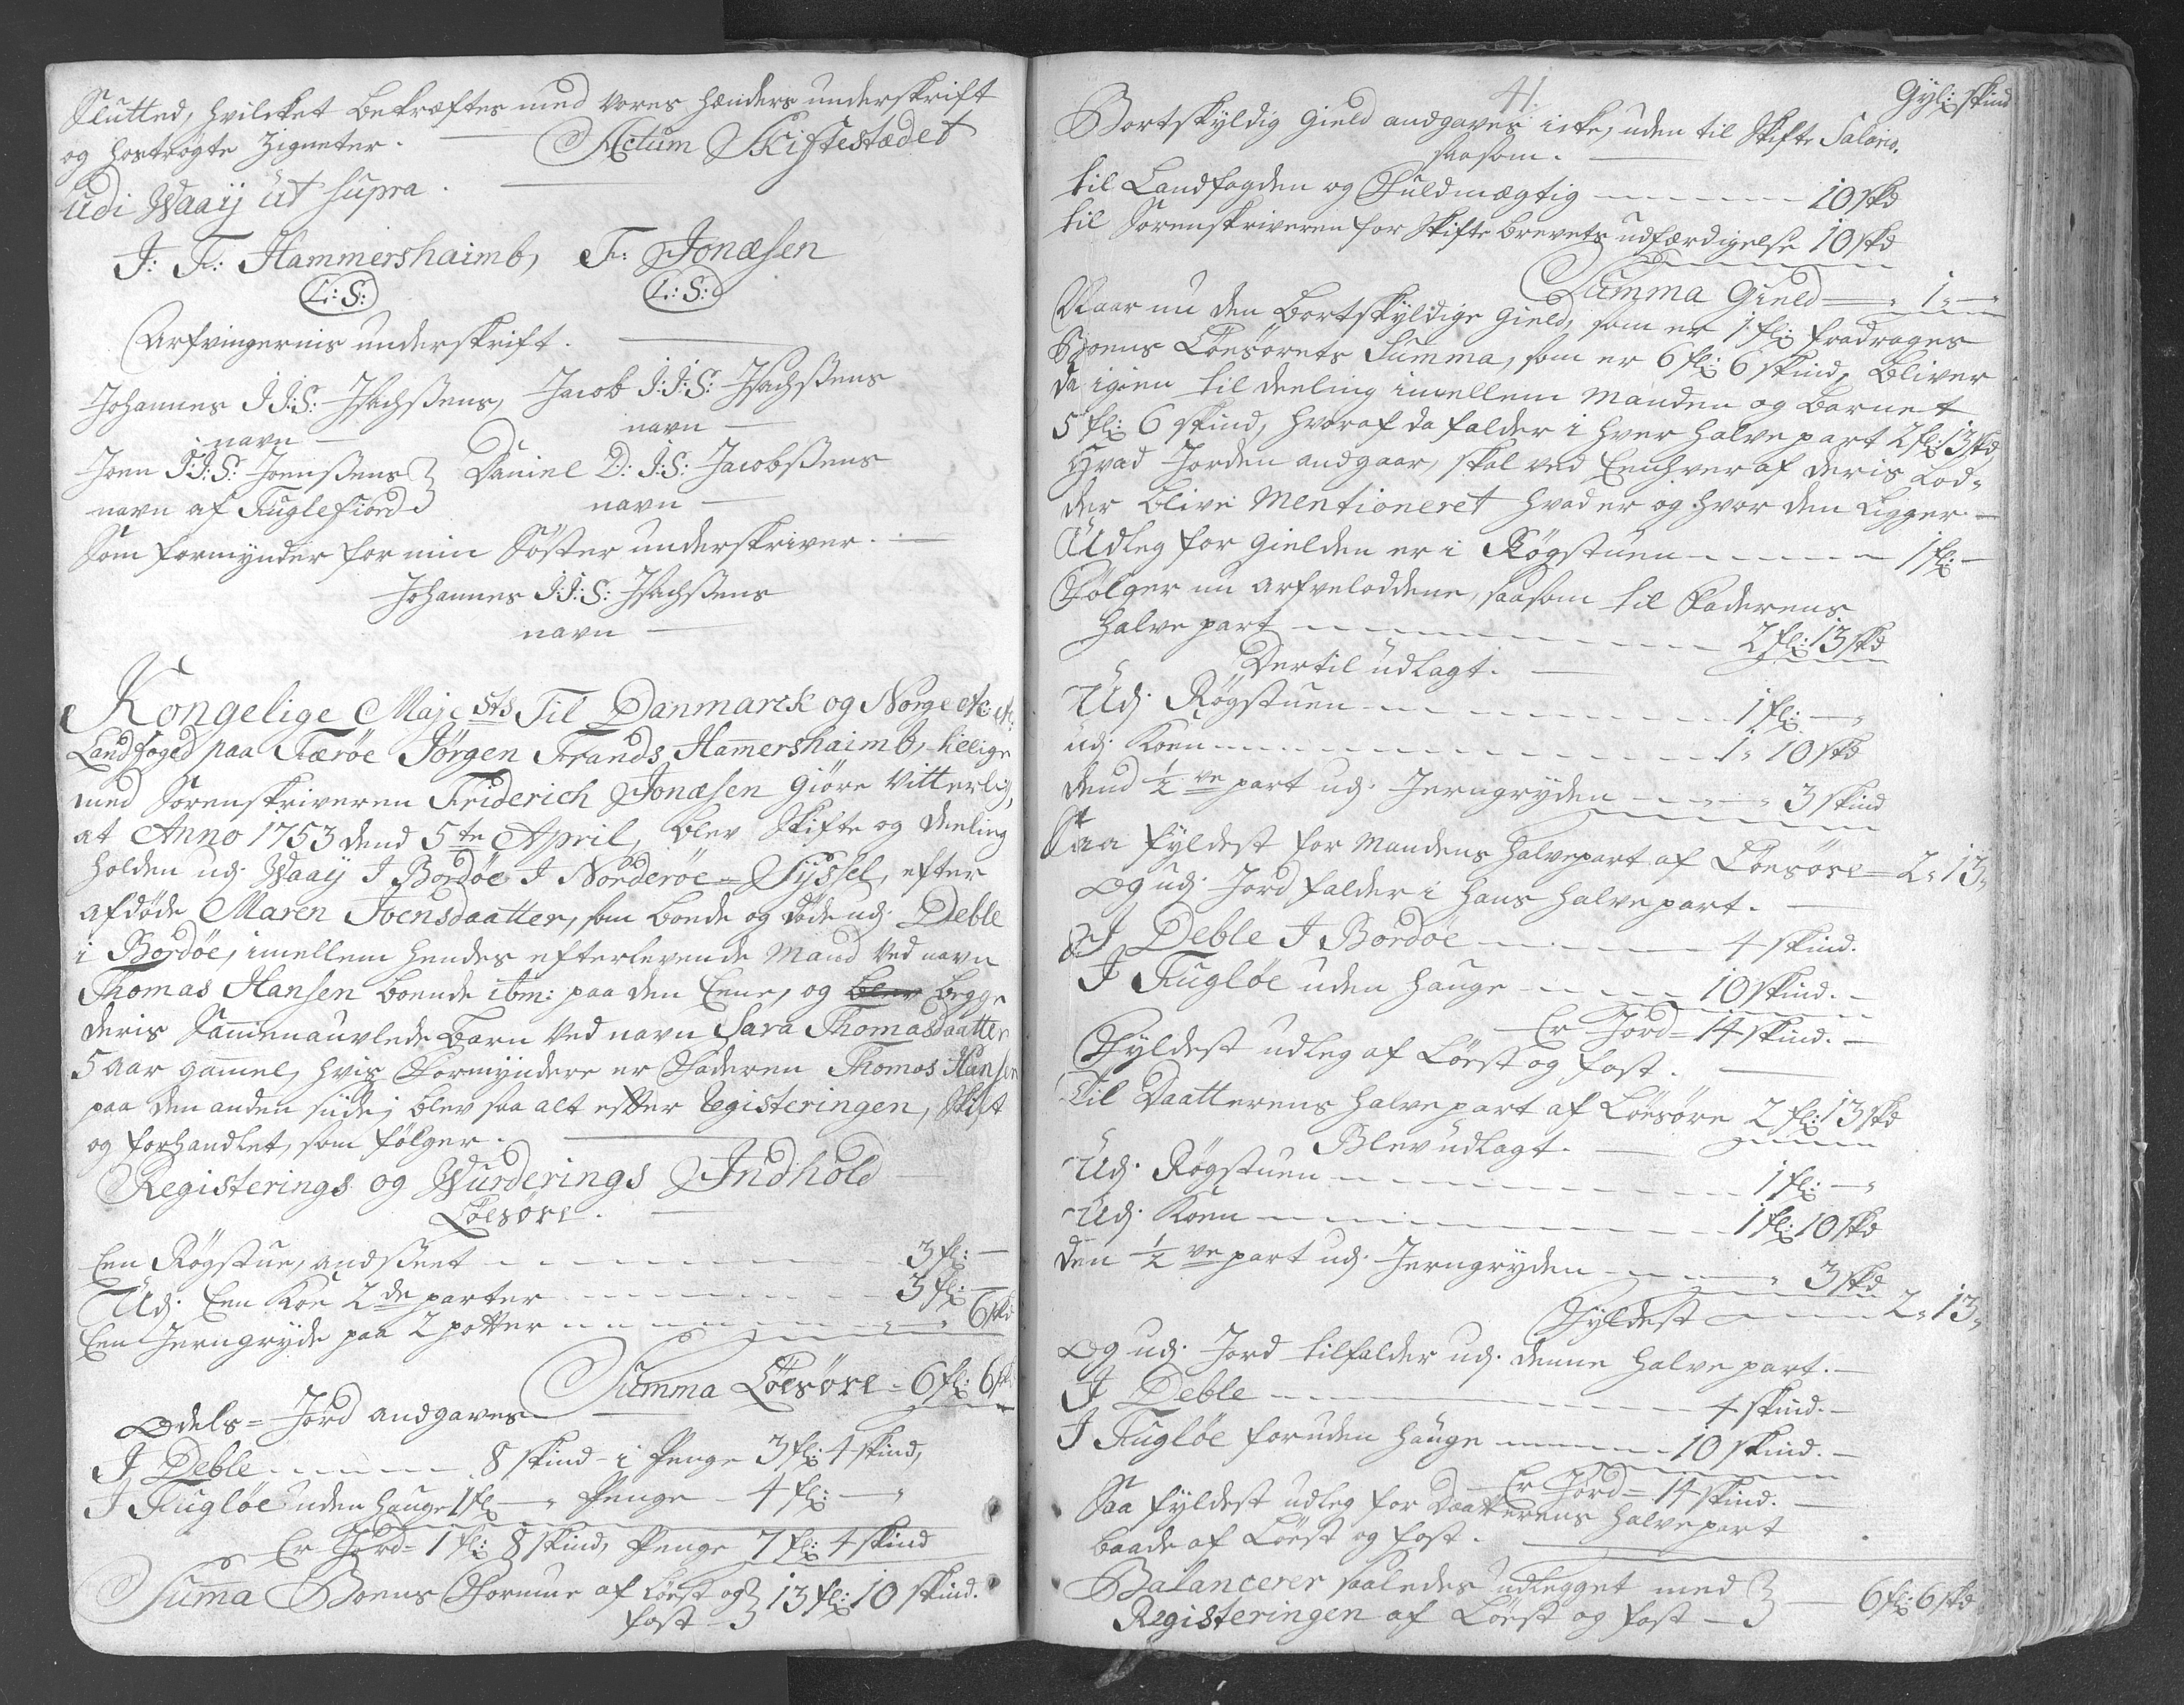 Slutted, hvilcket bekræftes med vores hænders underskrift
og hostrøgte Zigneter. Actum Skiftestædet
udi Waaij üt supra.
J: F: Hammershaimb, F: Jonæsen
L:S: L:S:
Arfvingernis underskrift.
Johannes J J:S: Jsachsens, Jacob J:J:S: Jsachsens
navn navn
Joen J:J:S: Joensens Daniel D:J:S: Jacobsens
navn af Fuglefiord navn
Som formynder for min Søster underskriver.
Johannes J:J:S: Jsachsens
navn
Kongelige Majests Til Danmarck og Norge etc etc:
Landfoged paa Færøe Jörgen Frands Hamershaimb, tillige
med Sorenskriveren Friderich Jonæsen giøre Vitterlig,
at Anno 1753 dend 5te April, blev Skifte og deeling
holden udj Waaij J Bordøe J Norderöe-Syssel, efter
afdøde Maren Joensdaatter, som boede og døde udj Deble
i Bordöe, imellem hendes efterlevende Mand ved navn
Thomas Hansen boende ibm: paa den Eene, og blev begge
deris Sammenauvlede Barn ved navn Sara Thomasdaatter
5 Aar gammel, hvis Formyndere er Faderen Thomas Hansen
paa den anden siide; blev saa alt efter Registeringen, Skift
og forhandlet, som følger.
Registerings og Wurderings Indhold
Löesøre.
Een Røgstue, andseet 3 fl:
Udj Een Koe 2de parter 3 fl:
Een Jerngryde paa 2 potter 6 skd
Summa Löesøre = 6 fl: 6 sk:
Odels = Jord andgaves
J Deble 8 skind i Penge 3 fl: 4 skind,
J Fugløe uden hauge 1 fl Penge 4 fl:
Er Jord = 1 fl: 8 skind, Penge 7 fl: 4 skind
Suma Boens Formue af Löest og 13 fl: 10 skind.
fast
41.
Gyl: skind
Bortskyldig Gield andgaves icke, uden til Skifte Salario.
saasom.
til Landfogden og Fuldmægtig 10 skd
til Sorenskriveren for Skifte brevets udfærdigelse 10 skd
Summa Gield 1
Naar nu den bortskyldige Gield, som er 1 fl: fradrages
Boens Löesørets Summa, som er 6 fl: 6 skind, bliver
da igien til deeling imellem Manden og Barnet
5 fl: 6 skind, hvoraf da falder i hver halve part 2 fl: 13 skd
Hvad Jorden andgaar, skal ved Eenhver af deris Lod-
der blive Mentioneret hvad er og hvor den Ligger.
Udleg for gielden er i Røgstuen 1 fl:
Følger nu arfveloddene, saasom til Faderens
halve part 2 fl: 13 skd
Dertil udlagt.
Udj Røgstuen 1 fl:
udj Koen 1 10 skd
dend 1/2ve part udj Jerngryden 3 skind
Saa fyldest for Mandens halvepart af Löesøre = 2 13
og udj Jord falder i hans halve part.
J Deble J Bordöe 4 skind.
J Fugløe uden hauge 10 skind.
Er Jord = 14 skind.
Fyldest udleg af Löest og fast.
Til Daatterens halve part af Löesøre 2 fl: 13 skd
Blev udlagt.
Udj Røgstuen 1 fl:
Udj Koen 1 fl: 10 skd
den 1/2ve part udj Jerngryden 3 skd
Fyldest 2 13
og udj Jord tilfalder udj denne halve part.
J Deble 4 skind.
J Fugløe foruden hauge 10 skind.
Er Jord = 14 skind.
Saa fyldest udleg for Daatterens halvepart
baade af Löest og fast.
Balancerer saaledes Udlegget med 6 fl: 6 skd
Registeringen af Löest og fast